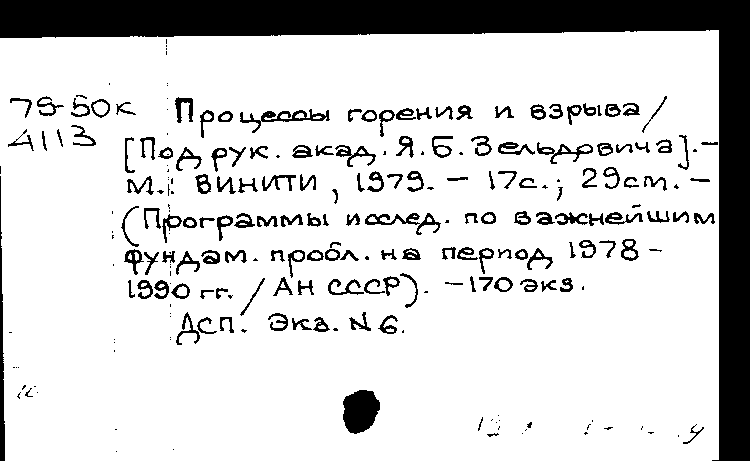 79-50к Процессы горения и взрыва/
4113 [Под рук. акад. Я.Б. Зельдовича].–
М.: ВИНИТИ, 1979. – 17с.; 29см. –
(Программы исслед. по важнейшим
фундам. пробл. на период 1978 –
1990 гг. / АН СССР). – 170 экз.
ДСП. Экз. N 6.